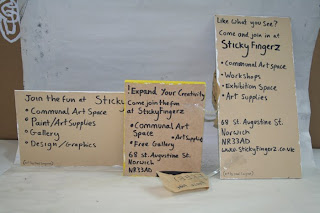 Join the fun at Sticky
• Communal Art Space
• Paint/Art Supplies
• Gallery
• Design/Graphics
! Expand Your Creativity
Come join the fun
at StickyFingerz
• Communal Art
Space
• Art Supplies
• Free Gallery
68 St. Augustine St.
Norwich
NR33AD
Like What you See?
Come and join in at
StickyFingerz
• Communal Art Space
• Workshops
• Exhibition Space
• Art Supplies
68 St. Augustine St.
Norwich
NR33AD
www.StickyFingerz.co.uk